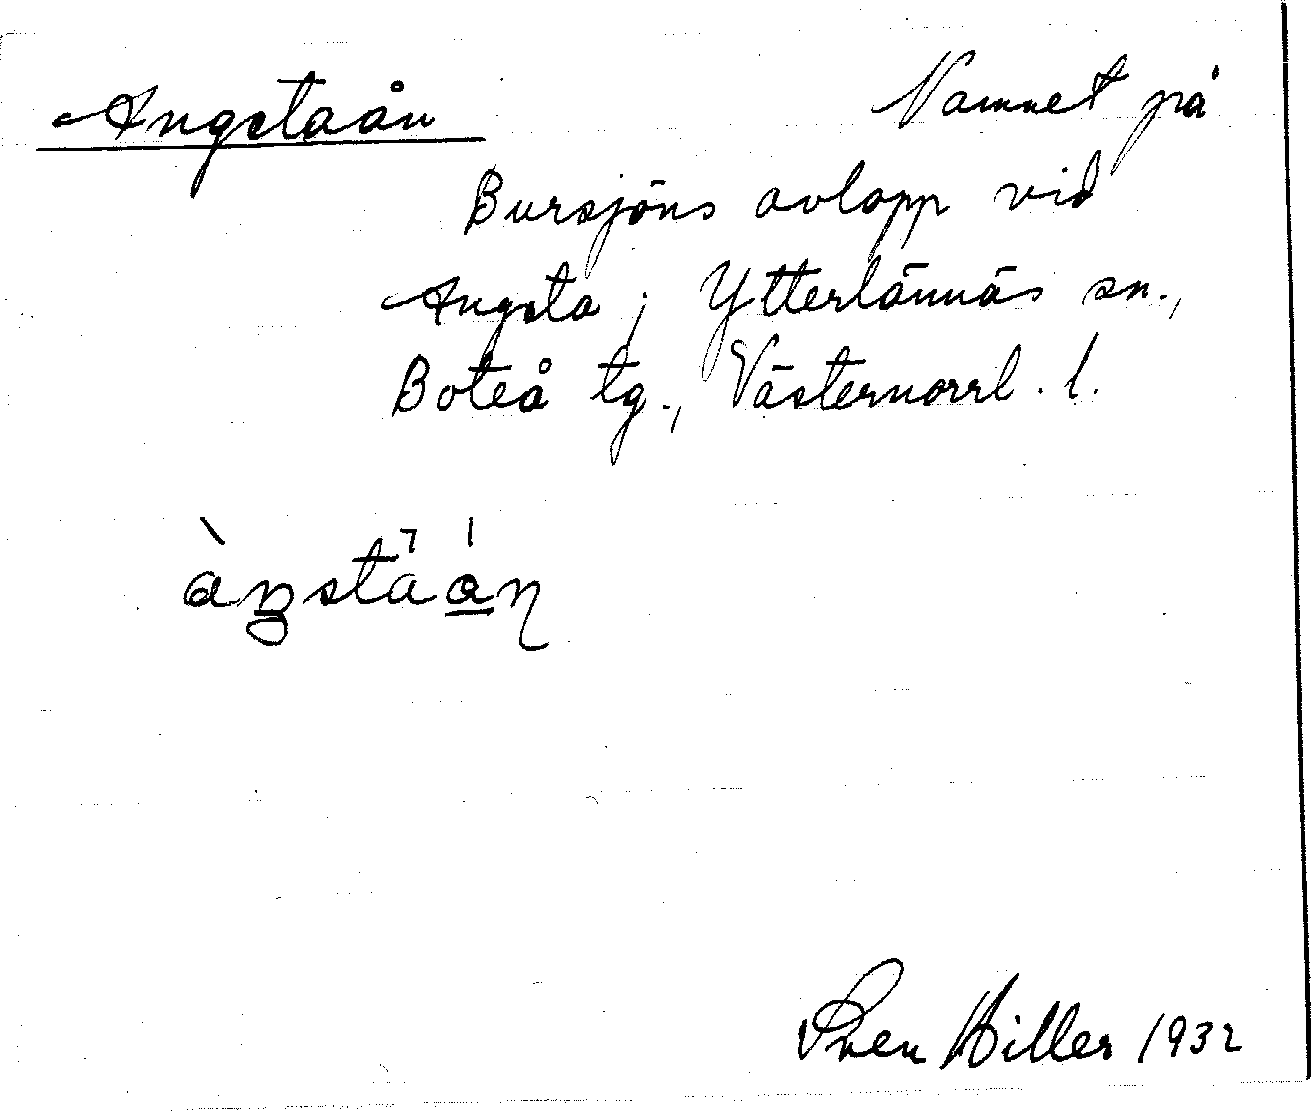 Angstaån Namnet på
Bursjöns avlopp vid
Angsta; Ytterlännäs sn.,
Boteå tg., Västernorrl. l.
Sven Hiller 1932